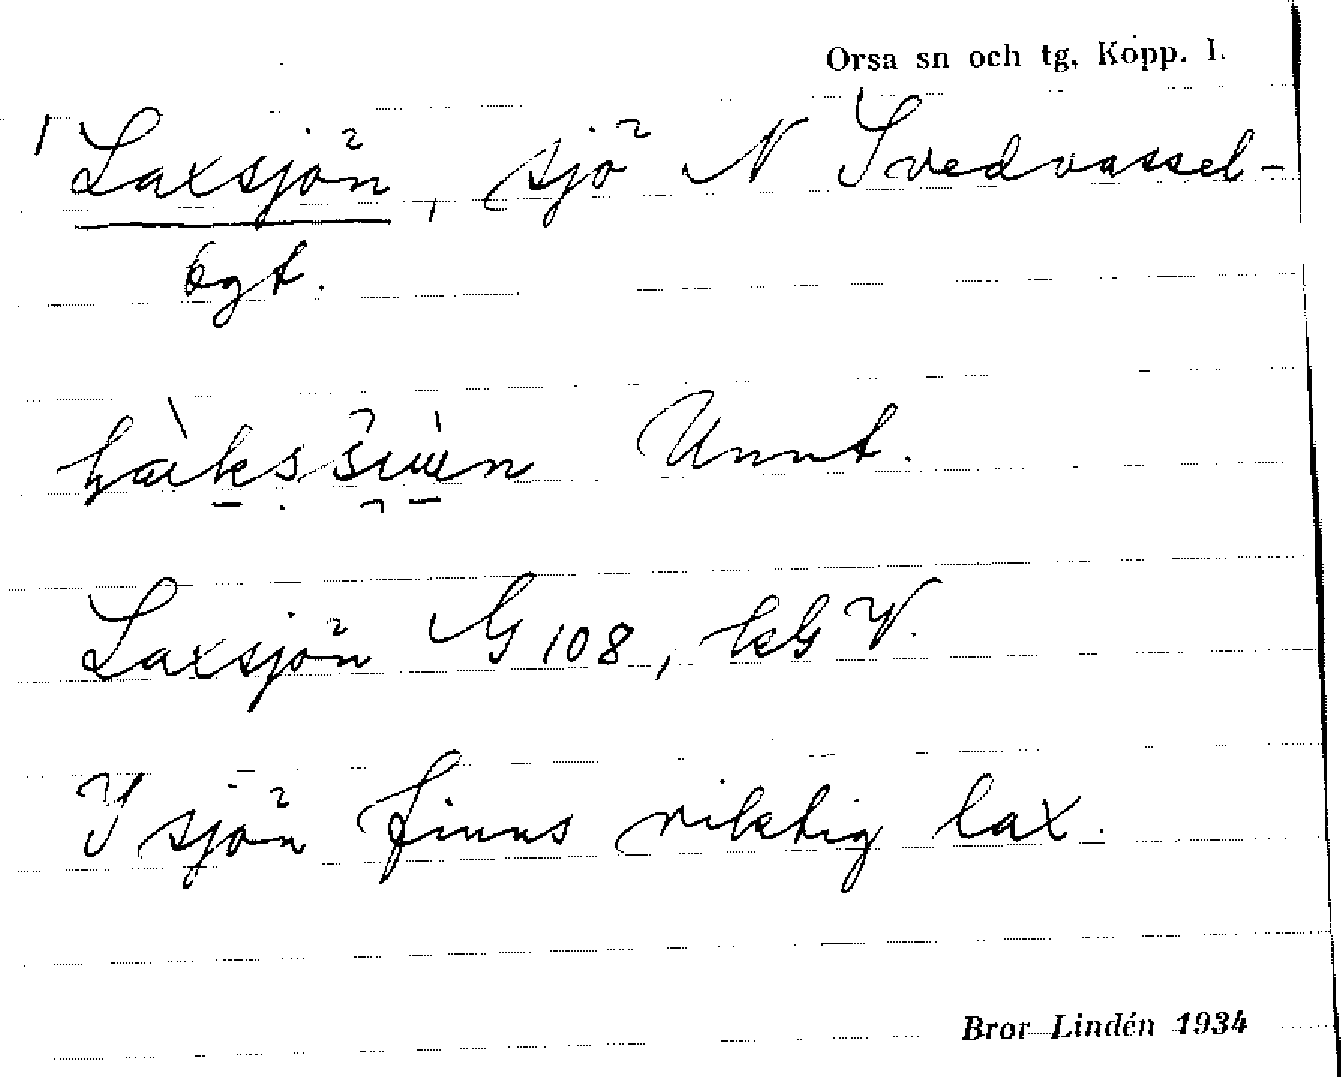 Orsa sn och tg. Kopp. l.
1 Laxsjön, sjö N Svedvassel-
bgt.
Unnt.
Laxsjön G 108, kG V.
I sjön finns riktig lax.
Bror Lindén 1934